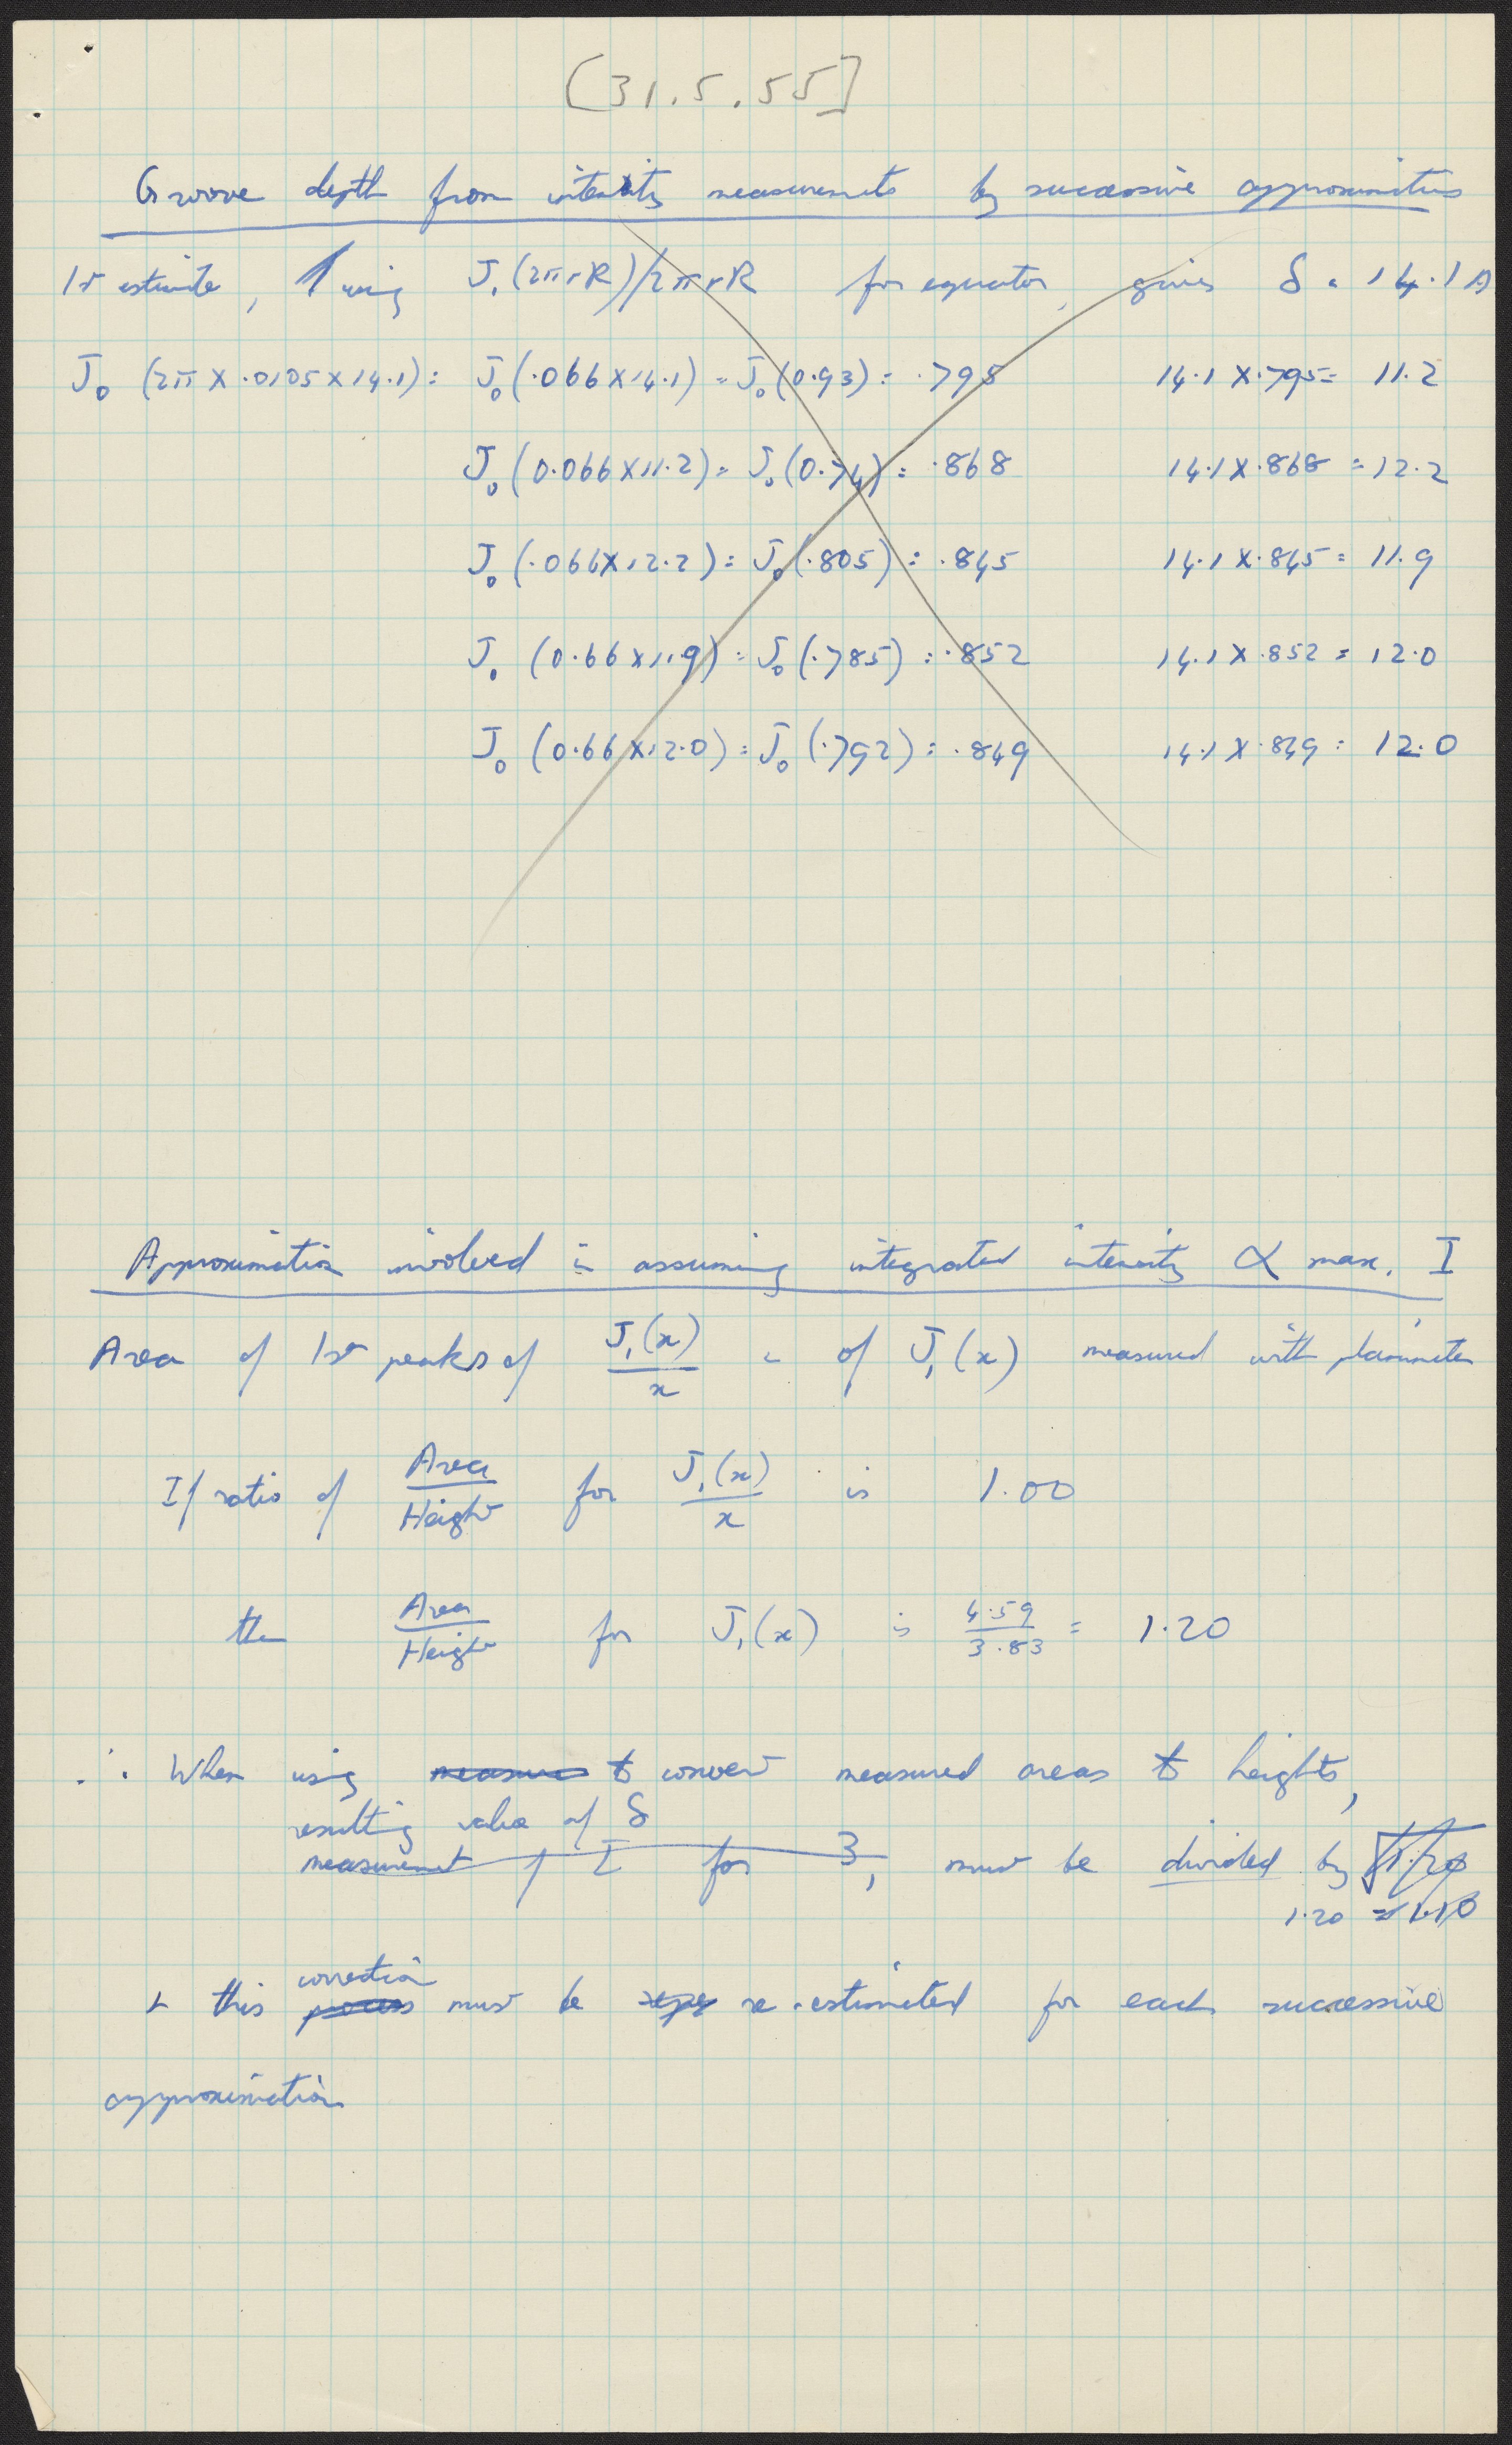 [31.5.55]
Groove depth from intensity measurements by successive approximations
1st estimate, using J₁(2πrR)/2πrR for equator, gives δ = 14.1 A
J₀ (2π × .0105 × 14.1) = J₀(.066 × 14.1) = J₀(0.93) = .795 14.1 × .795 = 11.2
J₀ (0.066 × 11.2) = J₀(0.74) = .868 14.1 × .868 = 12.2
J₀ (.066 × 12.2) = J₀(.805) = .845 14.1 × .845 = 11.9
J₀ (0.66 × 11.9) = J₀(.785) = .852 14.1 × .852 = 12.0
J₀ (0.66 × 12.0) = J₀(.792) = .849 14.1 × .849 = 12.0
Approximation involved in assuming integrated intensity ∝ max. I
Area of 1st peaks of J₁(x)/x & of J₁(x) measured with planimeter
If ratio of Area/Height for J₁(x)/x is 1.00
then Area/Height for J₁(x) is 4.59/3.83 = 1.20
∴ When using measures to convert measured areas to heights,
resulting value of δ
measurement of I for 3, must be divided by √1.20
1.20 = 1.10
correction
& this process must be repe re-estimated for each successive
approximation